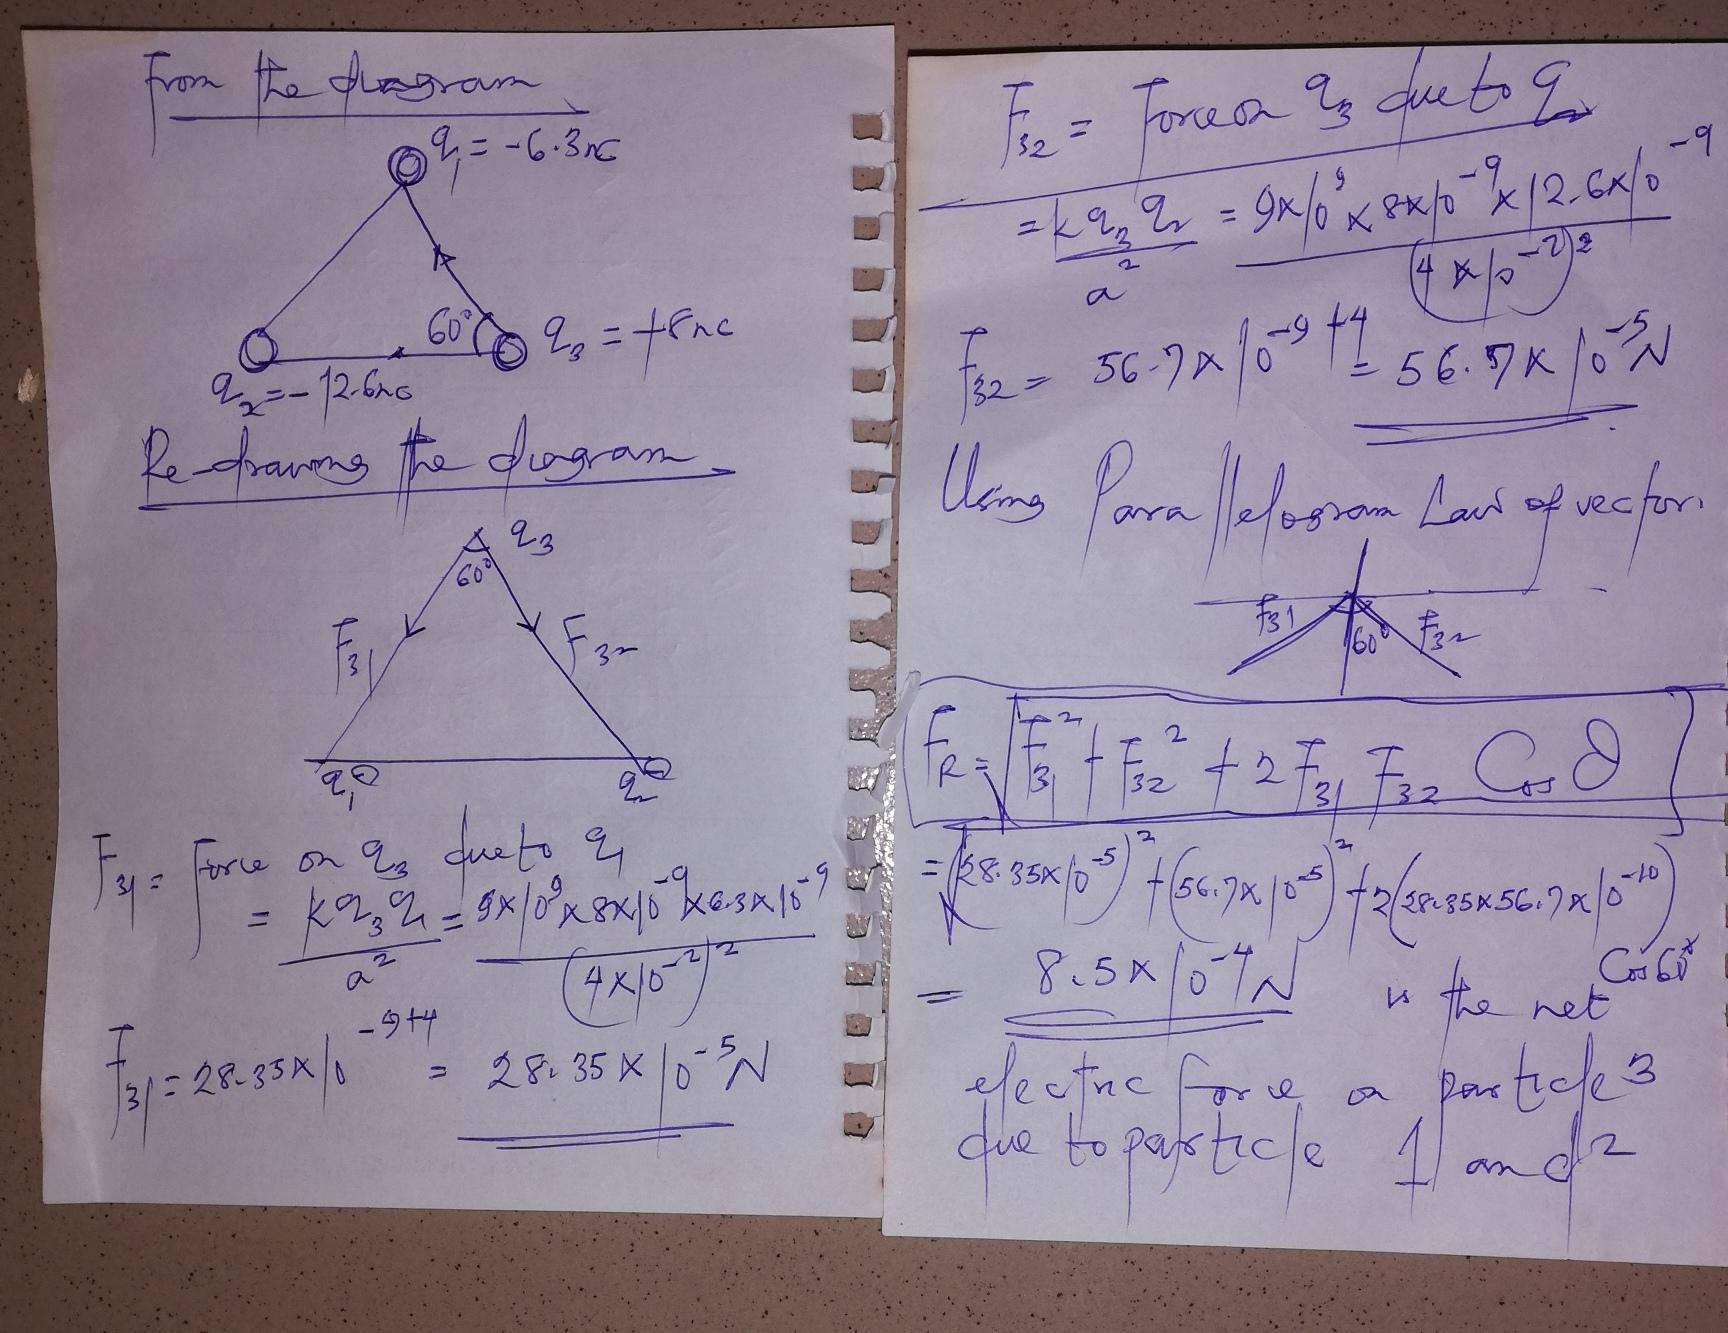 From the diagram
q₁ = -6.3nc
60° q₃ = +8nc
q₂ = -12.6nc
Re-drawing the diagram
q₃
60°
F₃₁ F₃₂
q₁ q₂
F₃₁ = Force on q₃ due to q₁
= kq₃q₁/a² = 9x10⁹x8x10⁻⁹x6.3x10⁻⁹/(4x10⁻²)²
F₃₁ = 28.35x10⁻⁹⁺⁴ = 28.35x10⁻⁵N
F₃₂ = Force on q₃ due to q₂
= kq₃q₂/a² = 9x10⁹x8x10⁻⁹x12.6x10⁻⁹/(4x10⁻²)²
F₃₂ = 56.7x10⁻⁹⁺⁴ = 56.7x10⁻⁵N
Using Parallelogram Law of vector.
F₃₁ 60° F₃₂
F_R = √F₃₁² + F₃₂² + 2F₃₁ F₃₂ Cos θ
= √(28.35x10⁻⁵)² + (56.7x10⁻⁵)² + 2(28.35x56.7x10⁻¹⁰)
Cos60°
= 8.5x10⁻⁴N is the net
electric force on particle 3
due to particle 1 and 2